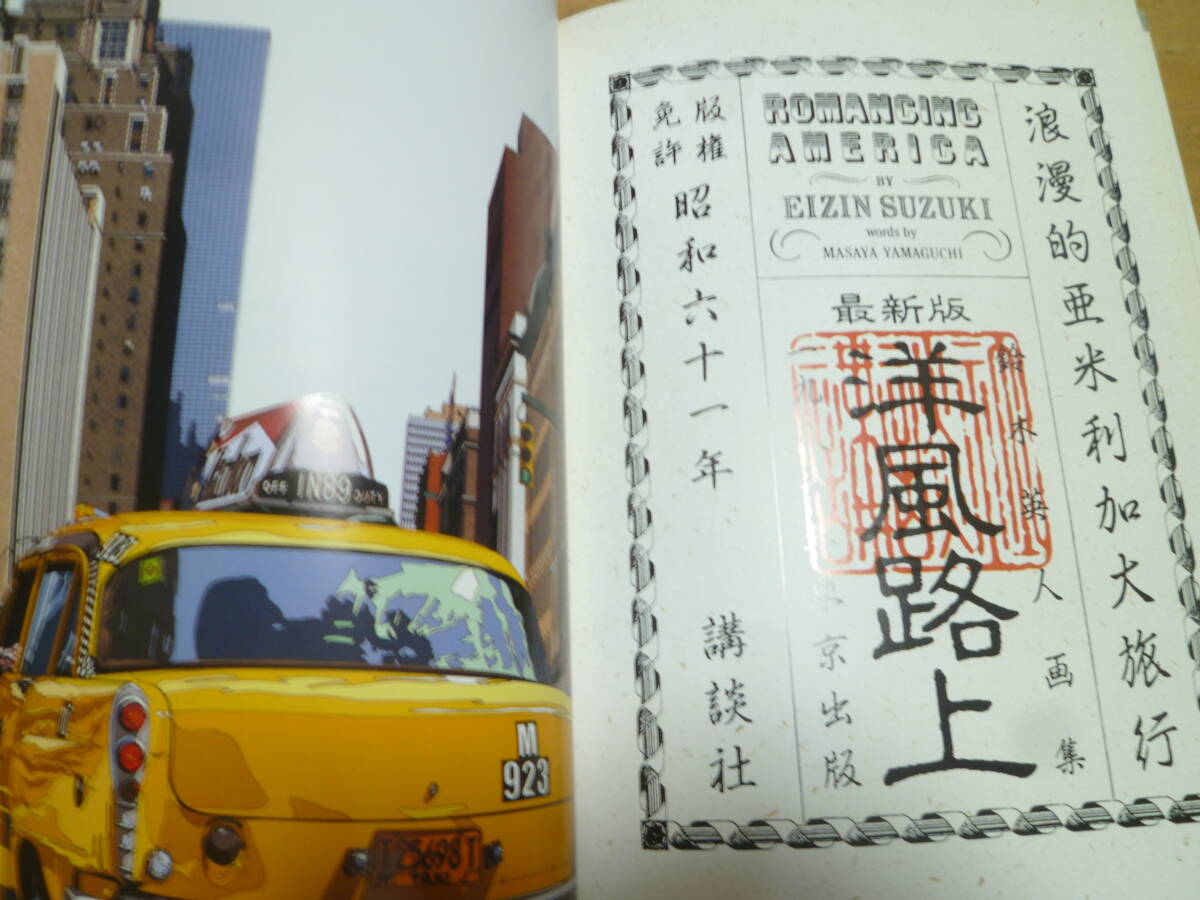 IN89
M
923
T25698T
ROMANCING
AMERICA
BY
EIZIN SUZUKI
words by
MASAYA YAMAGUCHI
浪漫的亜米利加大旅行
最新版
鈴木英人画集
洋風路上
京出版
版権
免許
昭和六十一年
講談社